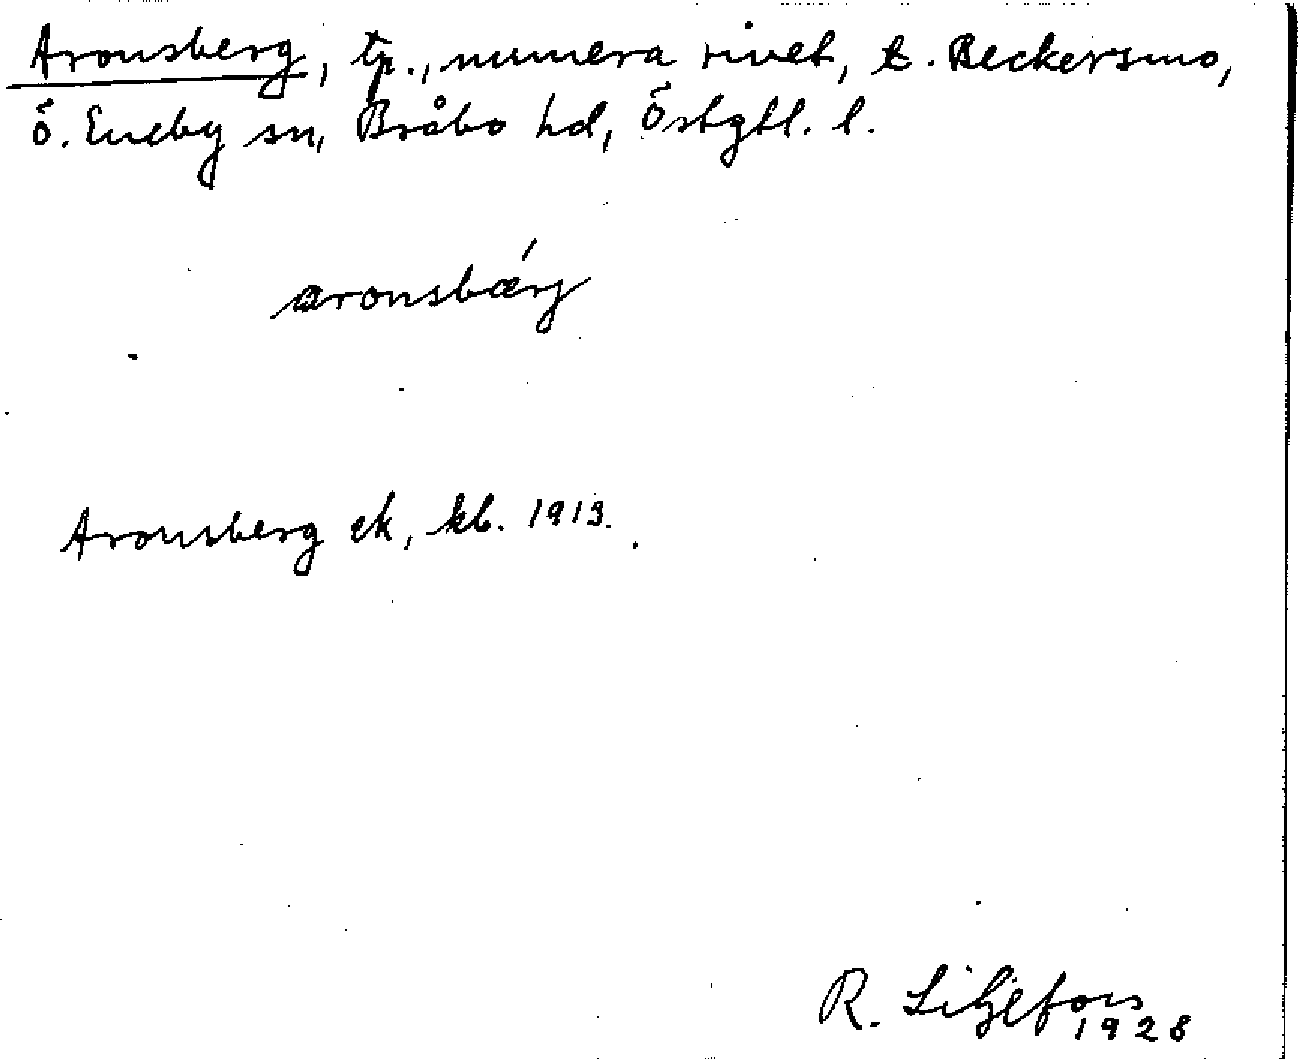 Aronsberg, tp., numera rivet, t. Beckersmo,
Ö. Eneby sn, Bråbo hd, Östgtl. l.
aronsbærj
Aronsberg ek, kb. 1913.
R. Liljefors
1928